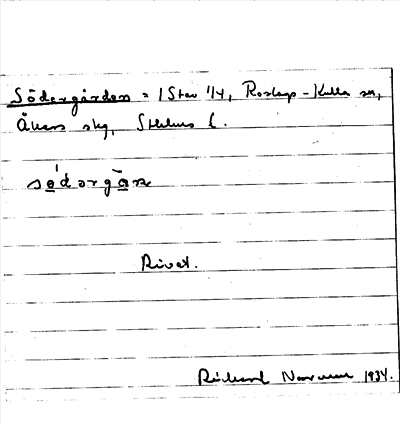 Södergården = 1 Stav 1/4, Roslags-Kulla sn,
Åkers skg, Sthlms l.
södərgān
Rivet.
Richard 1934.